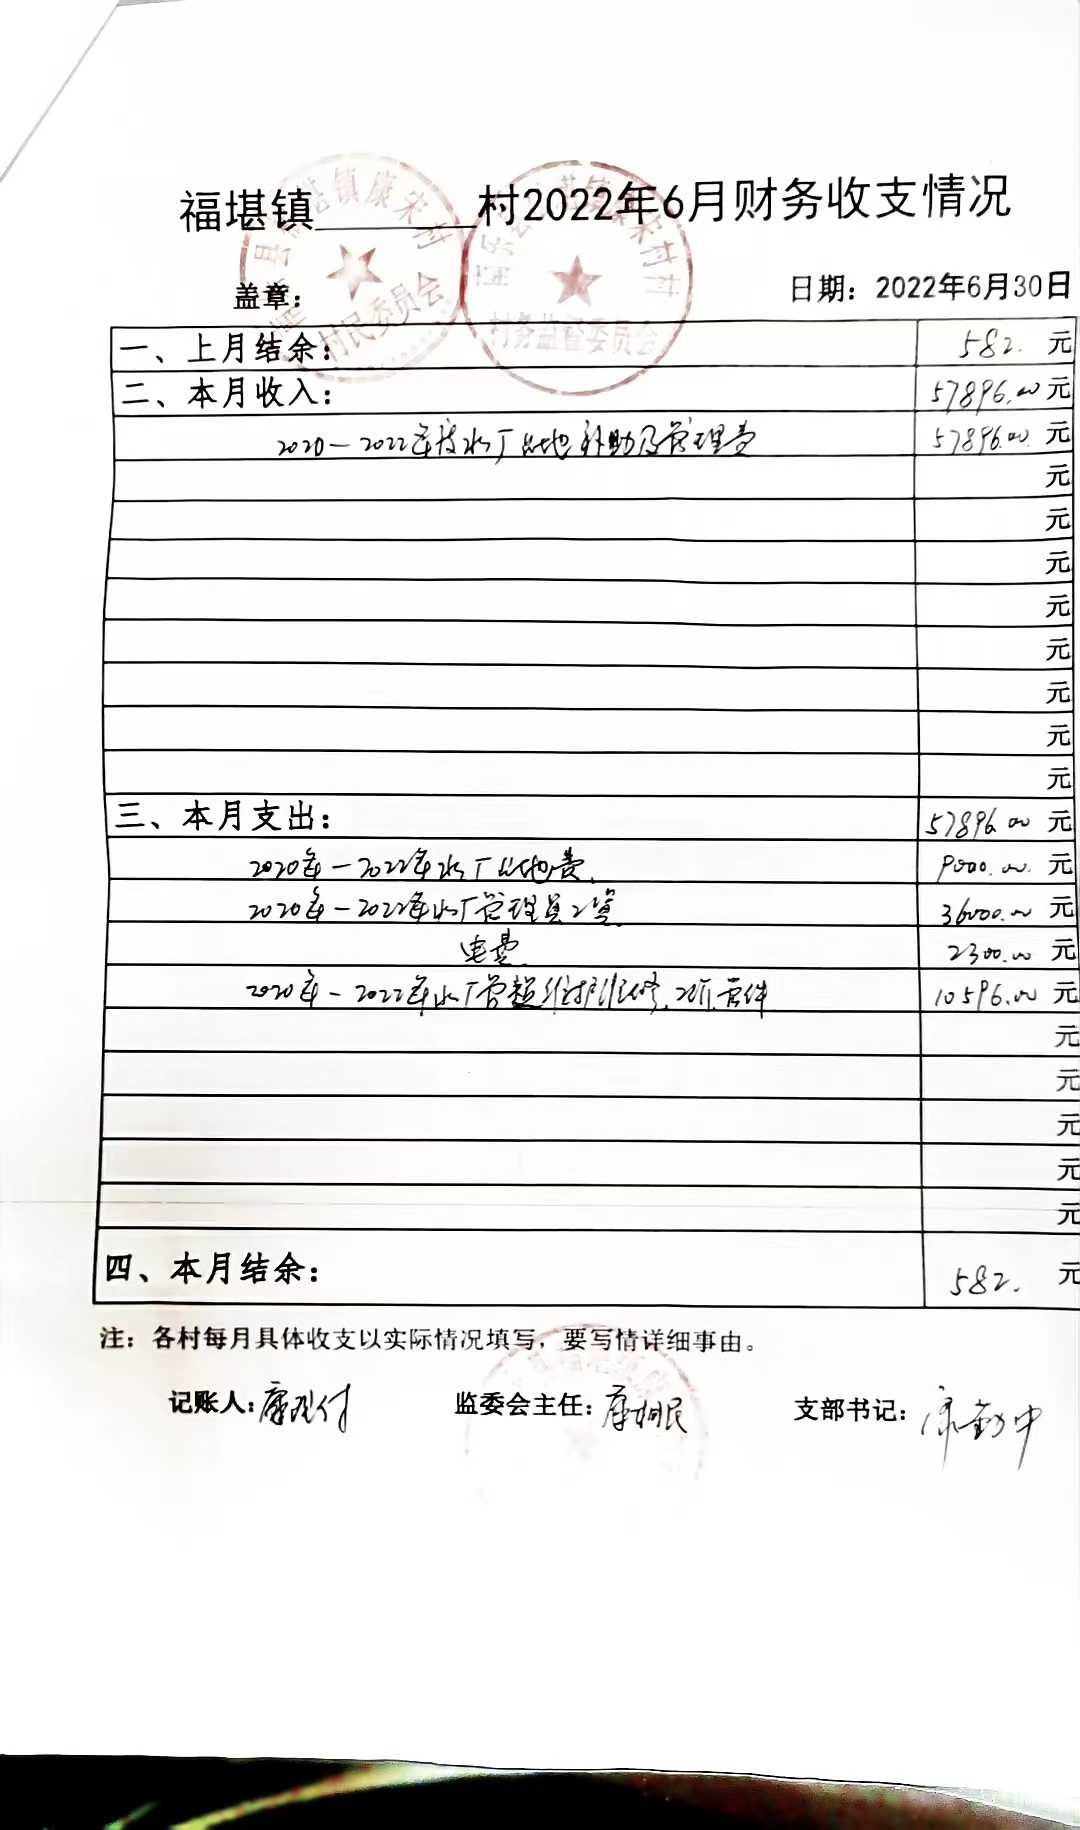 福堪镇 村2022年6月财务收支情况
盖章: 日期: 2022年6月30日
镇康宋村
村民委员会
镇康宋村村
村务监督委员会
一、上月结余: 582. 元
二、本月收入: 57896.00元
2020—2022年 水厂占地补助及管理费 57896.00. 元
元
元
元
元
元
元
元
元
三、本月支出: 57896.00 元
2020年—2022年水厂占地费. 9000.00. 元
2020年—2022年水厂管理员工资 36000.00 元
电费 2300.00 元
2020年—2022年水厂管 维护维修、 零件 10596.00 元
元
元
元
元
元
四、本月结余: 582. 元
注: 各村每月具体收支以实际情况填写，要写情详细事由。
记账人: 康 付 监委会主任: 康 民 支部书记: 中